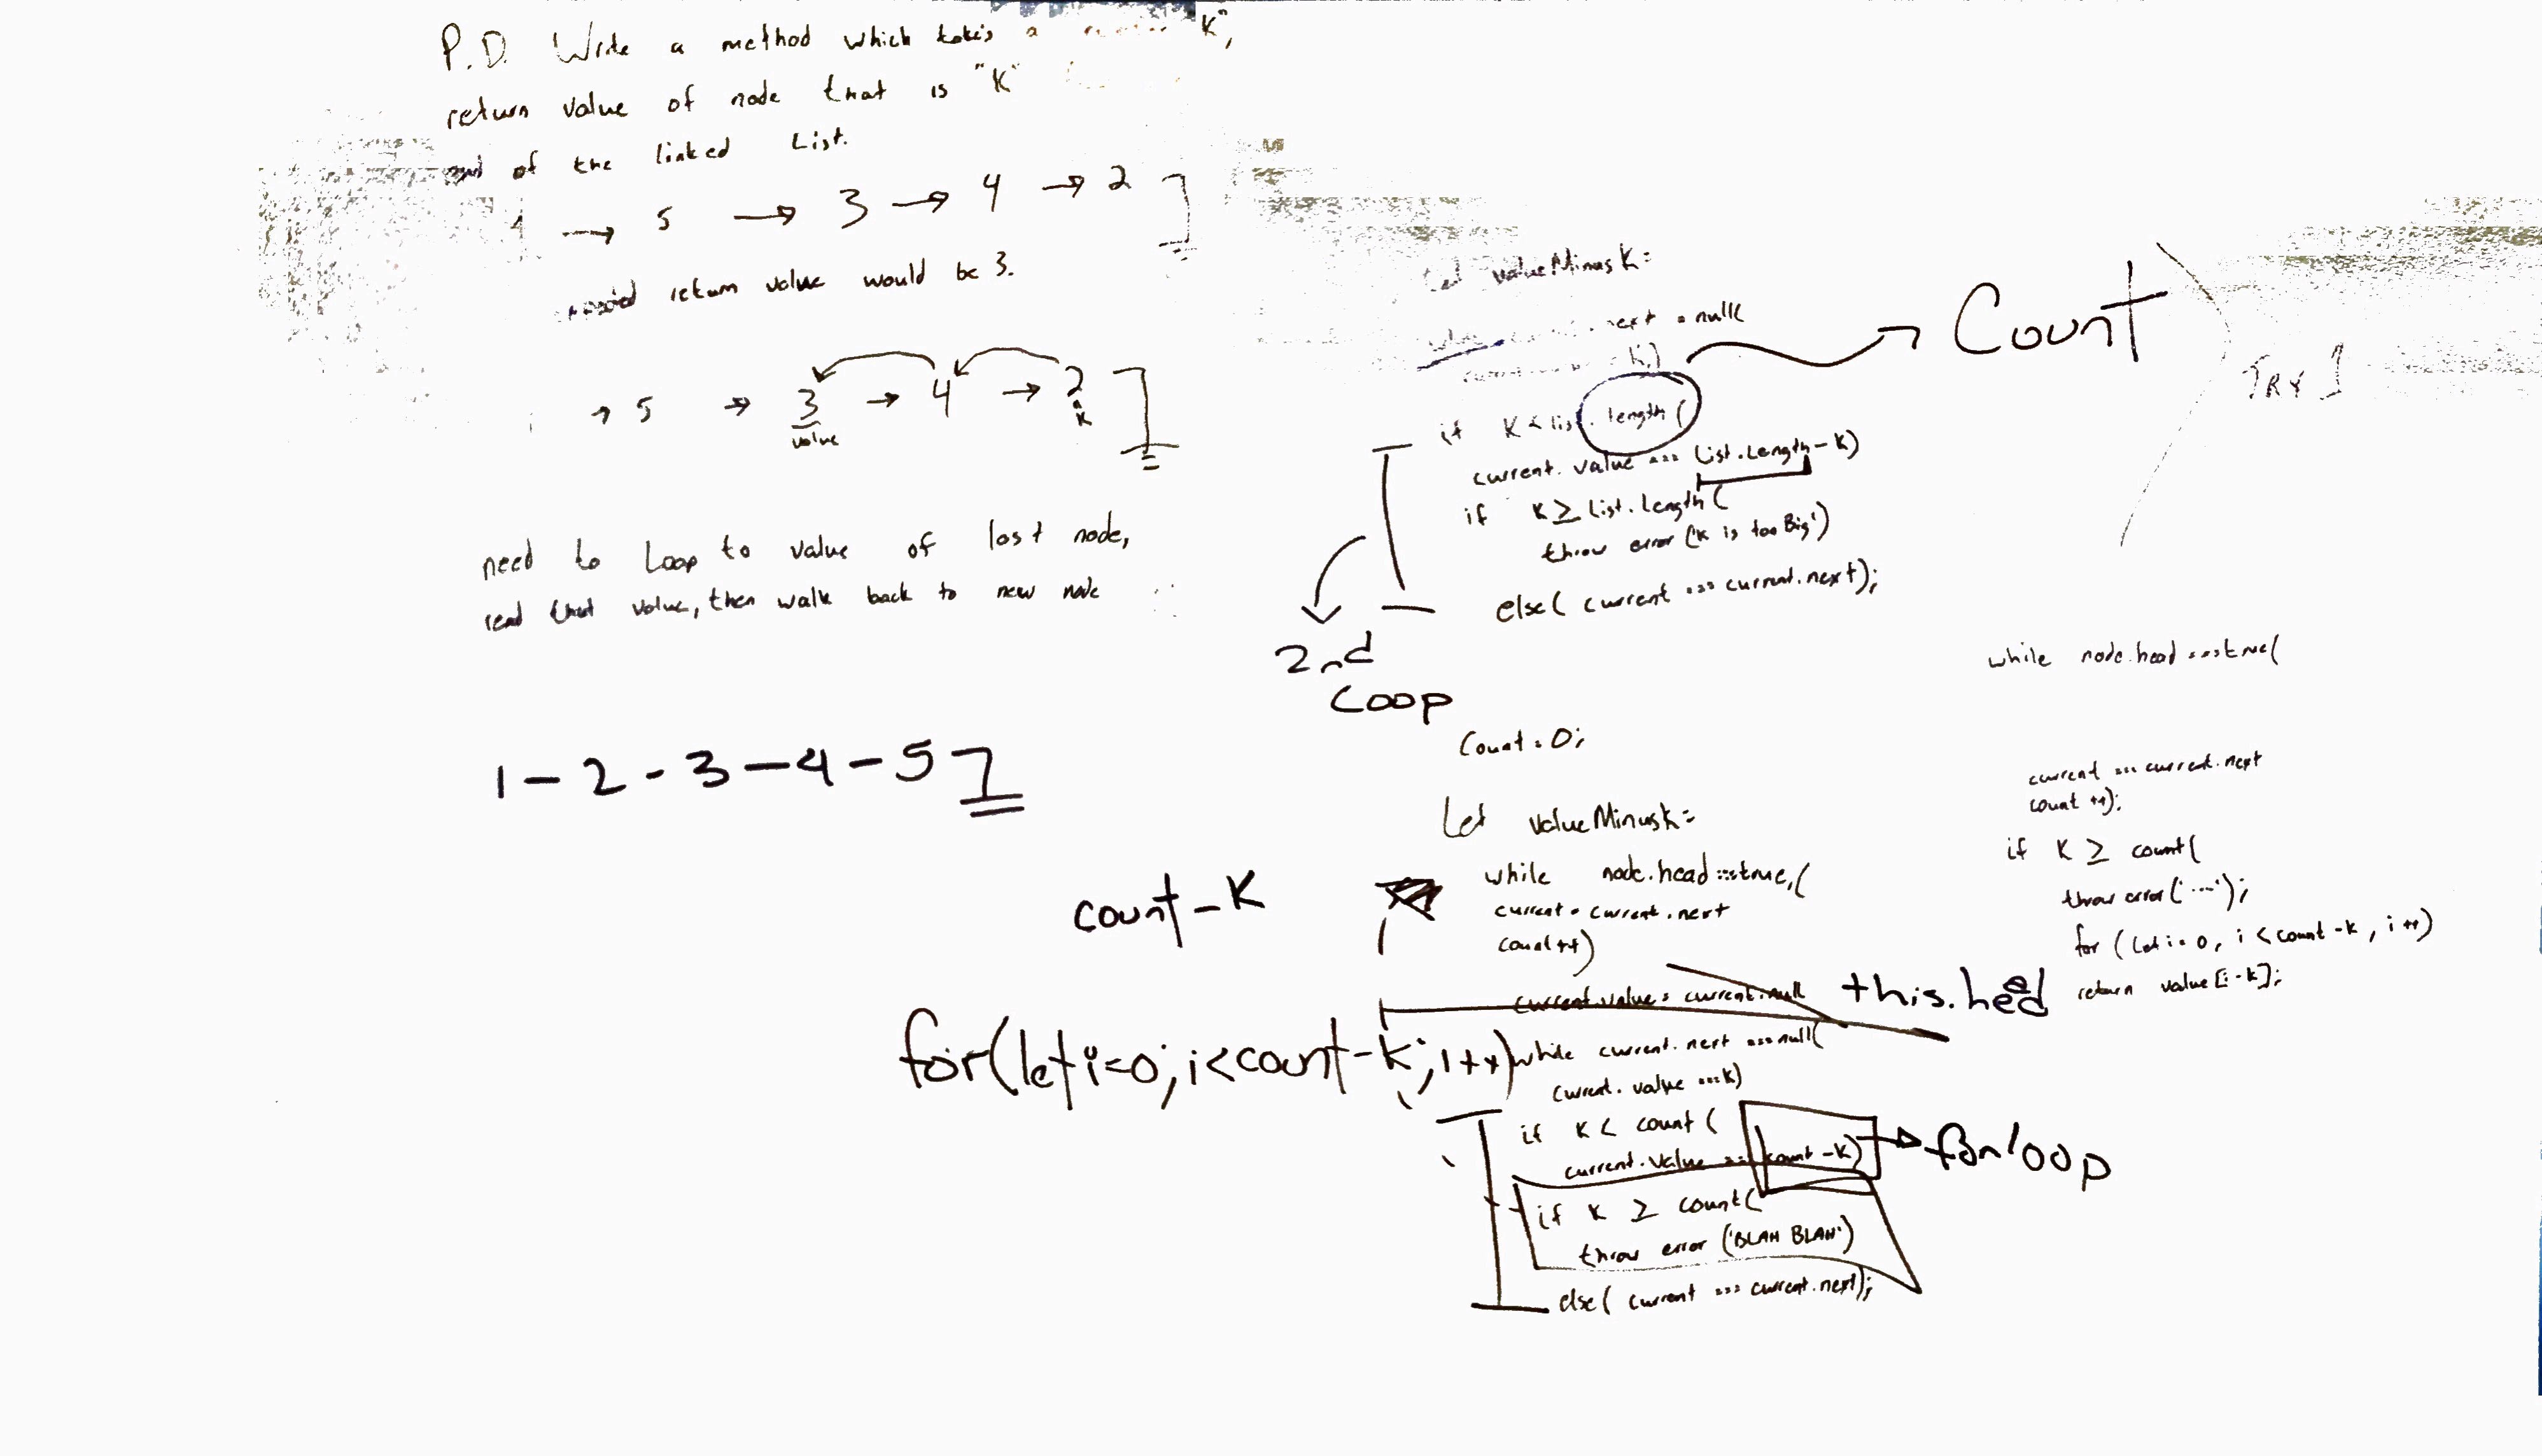 P.D. Write a method which takes a "K",
return value of node that is "K"
of the linked List.
→ 5 → 3 → 4 → 2
return value would be 3.
→ 5 → 3 → 4 → 2
value
K
need to Loop to value of last node,
read that value, then walk back to new node
1 - 2 - 3 - 4 - 5
count - K
for(let i=0; i<count-k; i++)
Let valueMinusK=
while next = null(
k)
if K < list.length(
current.value === List.Length-K)
if K ≥ List.length(
throw error('K is too Big')
else( current === current.next);
Count
TRY 1
2nd
Loop
Count = 0;
Let valueMinusK=
while node.head===true,(
current = current.next
count++)
current.value = current.null
this.head
while current.next === null(
current.value === k)
if K < count (
current.value === count-K)
for loop
if K ≥ count(
throw error ('BLAH BLAH')
else( current === current.next);
while node.head ===true(
current === current.next
count ++);
if K ≥ count(
throw error('....');
for (Let i=0, i < count-k, i++)
return value[i-k];